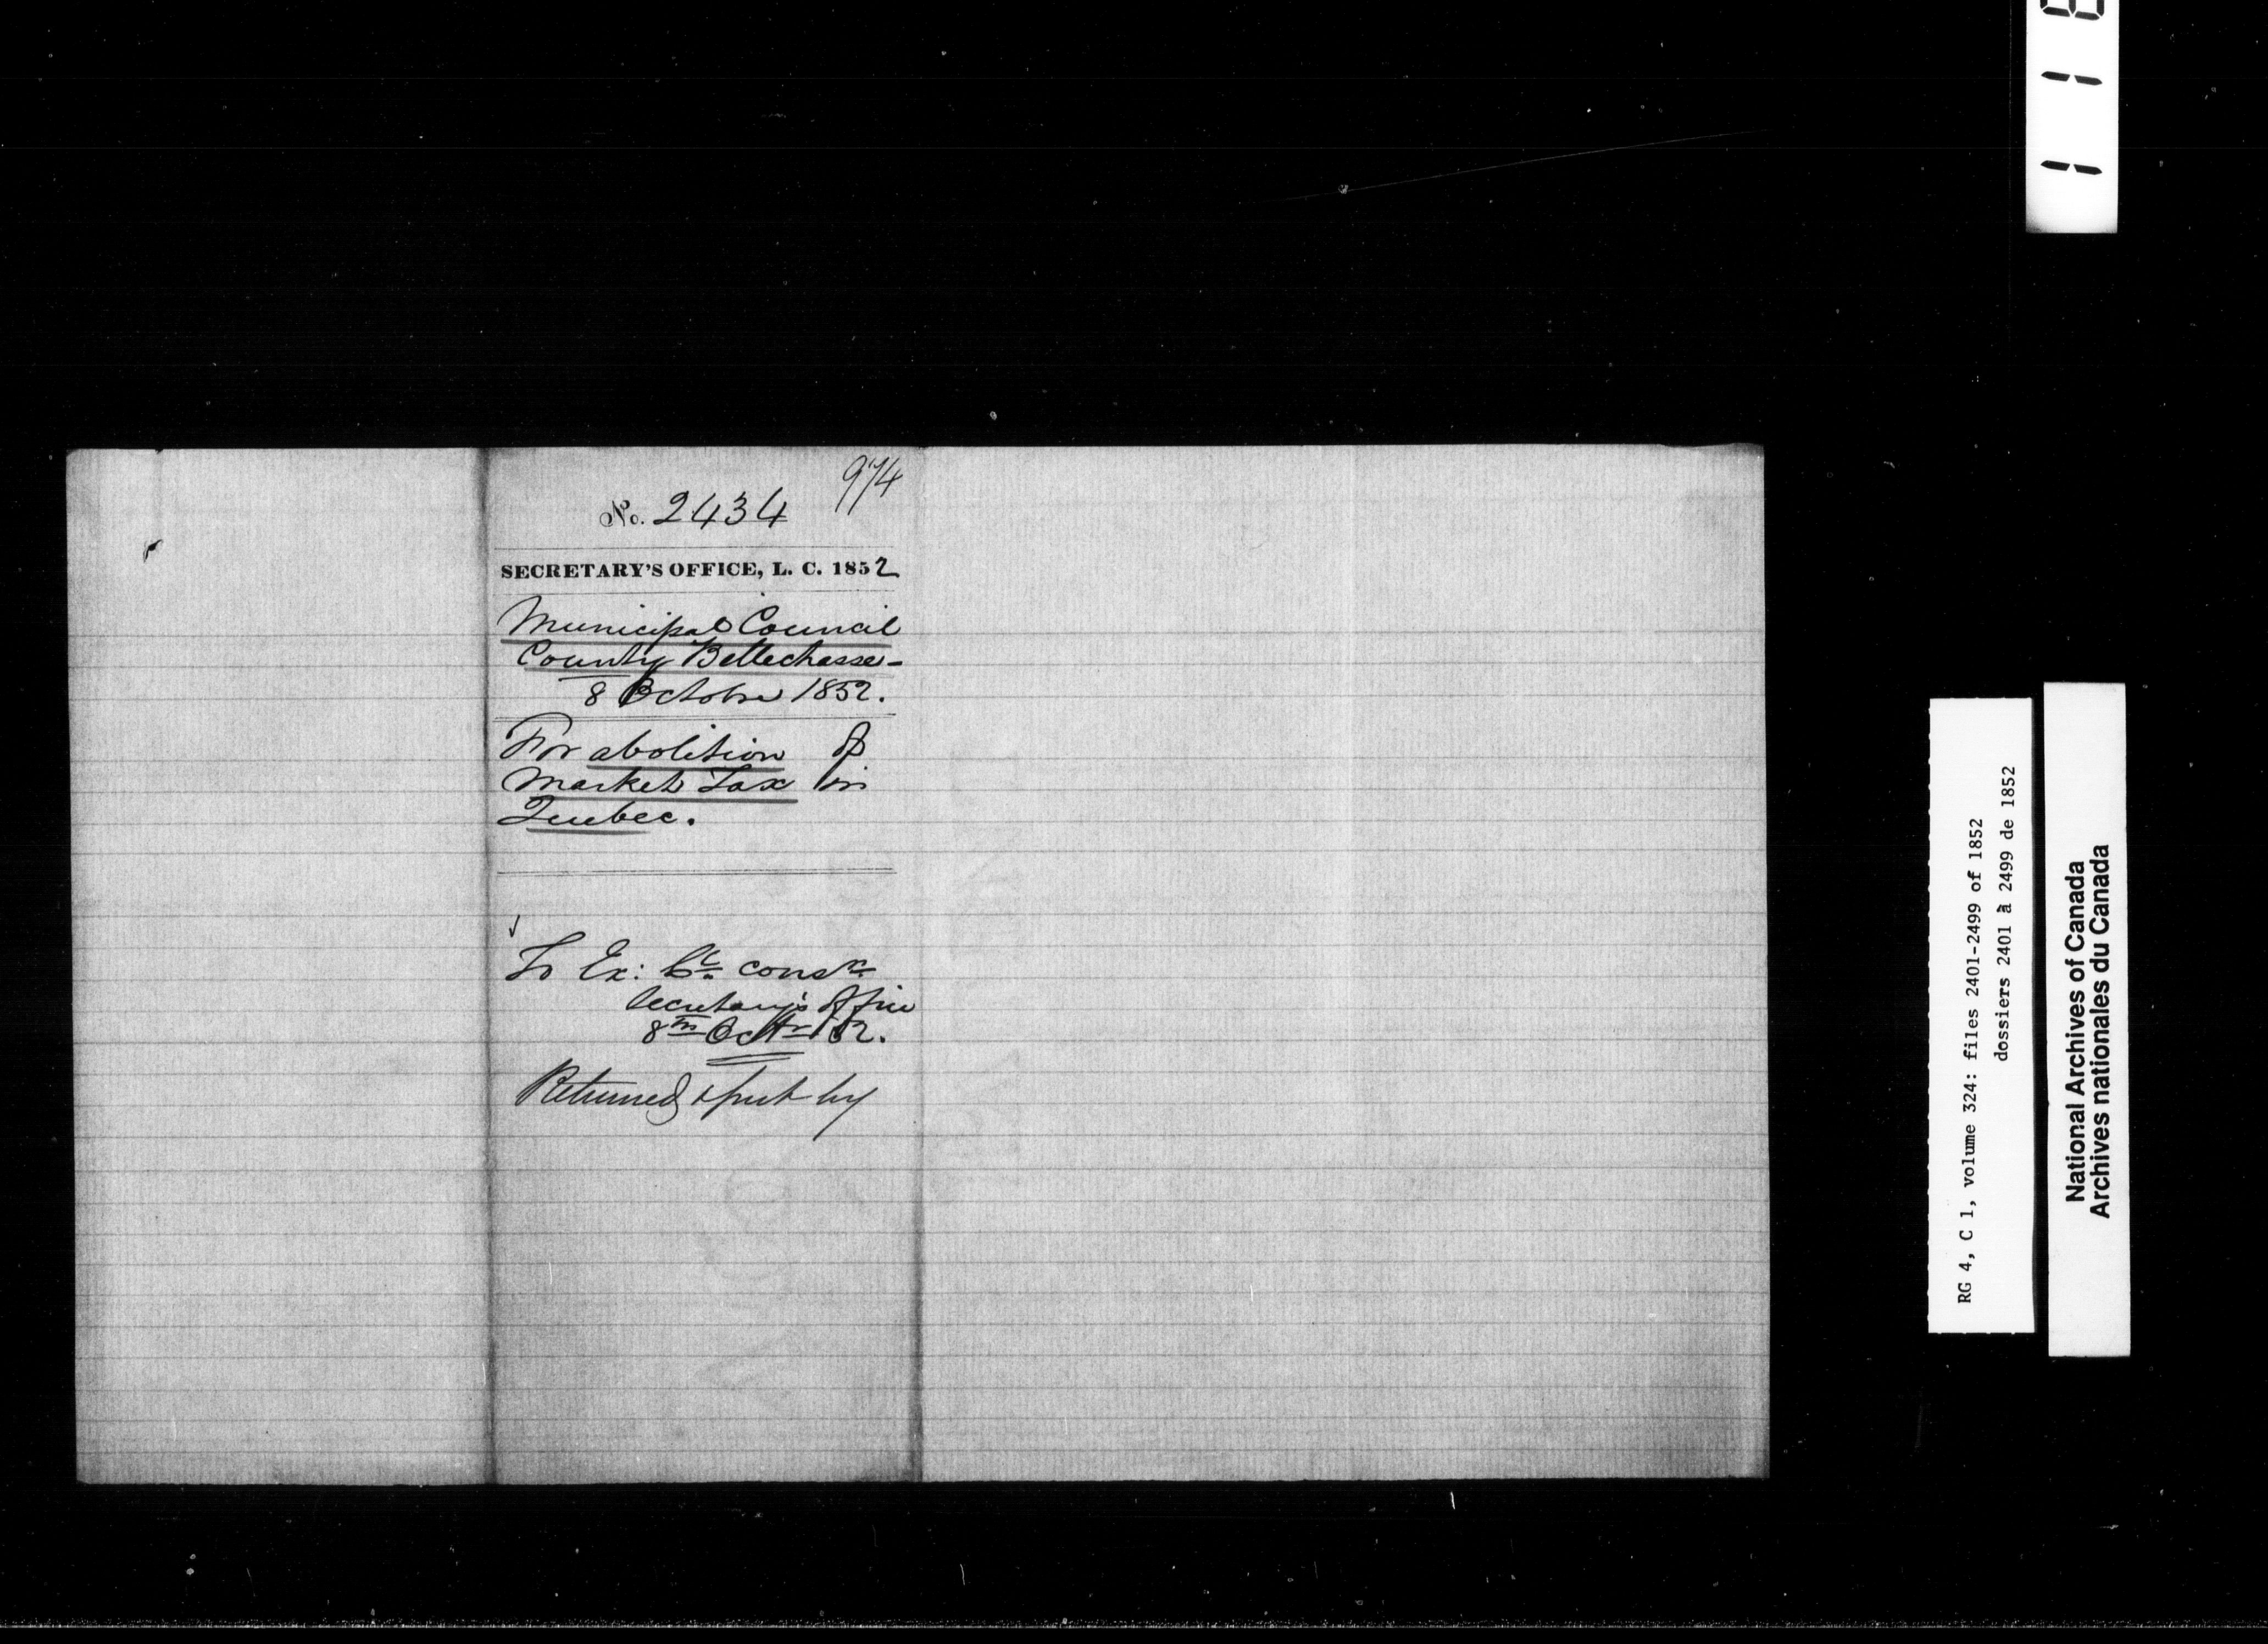 974
No. 2434
SECRETARY'S OFFICE, L. C. 1852
Municipal Council
County Bellechasse-
8 October 1852.
For abolition of
Market Tax in
Quebec.
To Ex: Cl. consn
Secretary's Office
8th Octr 52.
Returned & put by
RG 4, C 1, volume 324: files 2401-2499 of 1852
dossiers 2401 à 2499 de 1852
National Archives of Canada
Archives nationales du Canada